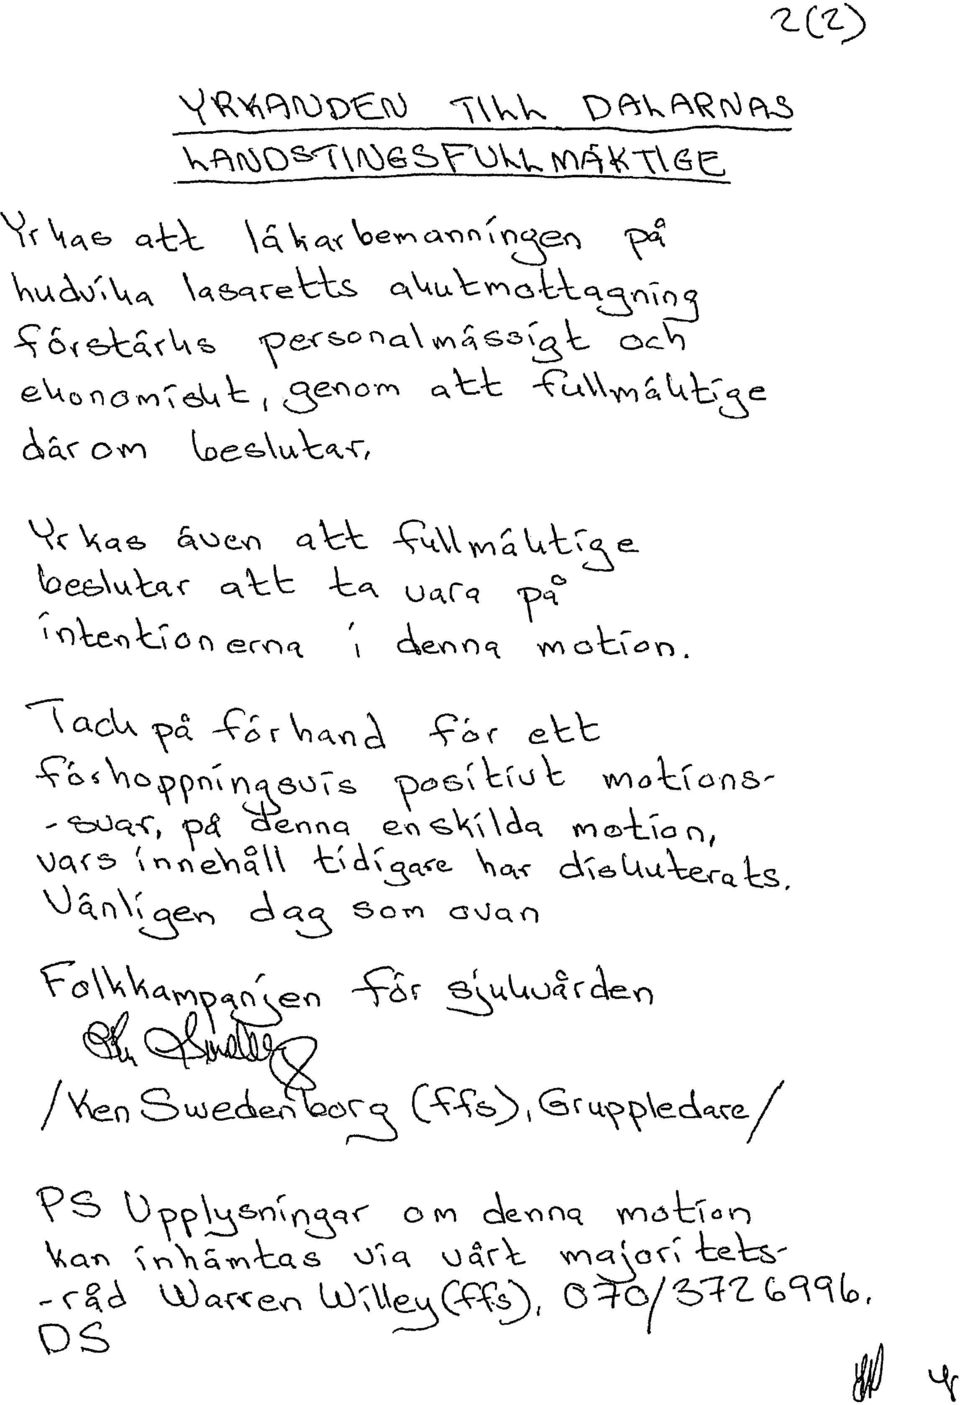 2(2)
YRKANDEN TILL DALARNAS
LANDSTINGSFULLMÄKTIGE
Yrkas att läkarbemanningen på
ludvika lasaretts akutmottagning
förstärks personalmässigt och
ekonomiskt, genom att fullmäktige
därom beslutar,
Yrkas även att fullmäktige
beslutar att ta vara på
intentionerna i denna motion.
Tack på förhand för ett
förhoppningsvis positivt motions-
-svar, på denna enskilda motion,
vars innehåll tidigare har diskuterats.
Vänligen dag som ovan
Folkkampanjen för sjukvården
/Ken Swedenborg (ffs), Gruppledare/
PS Upplysningar om denna motion
kan inhämtas via vårt majoritets-
-råd Warren Willey (ffs), 070/3726996.
DS